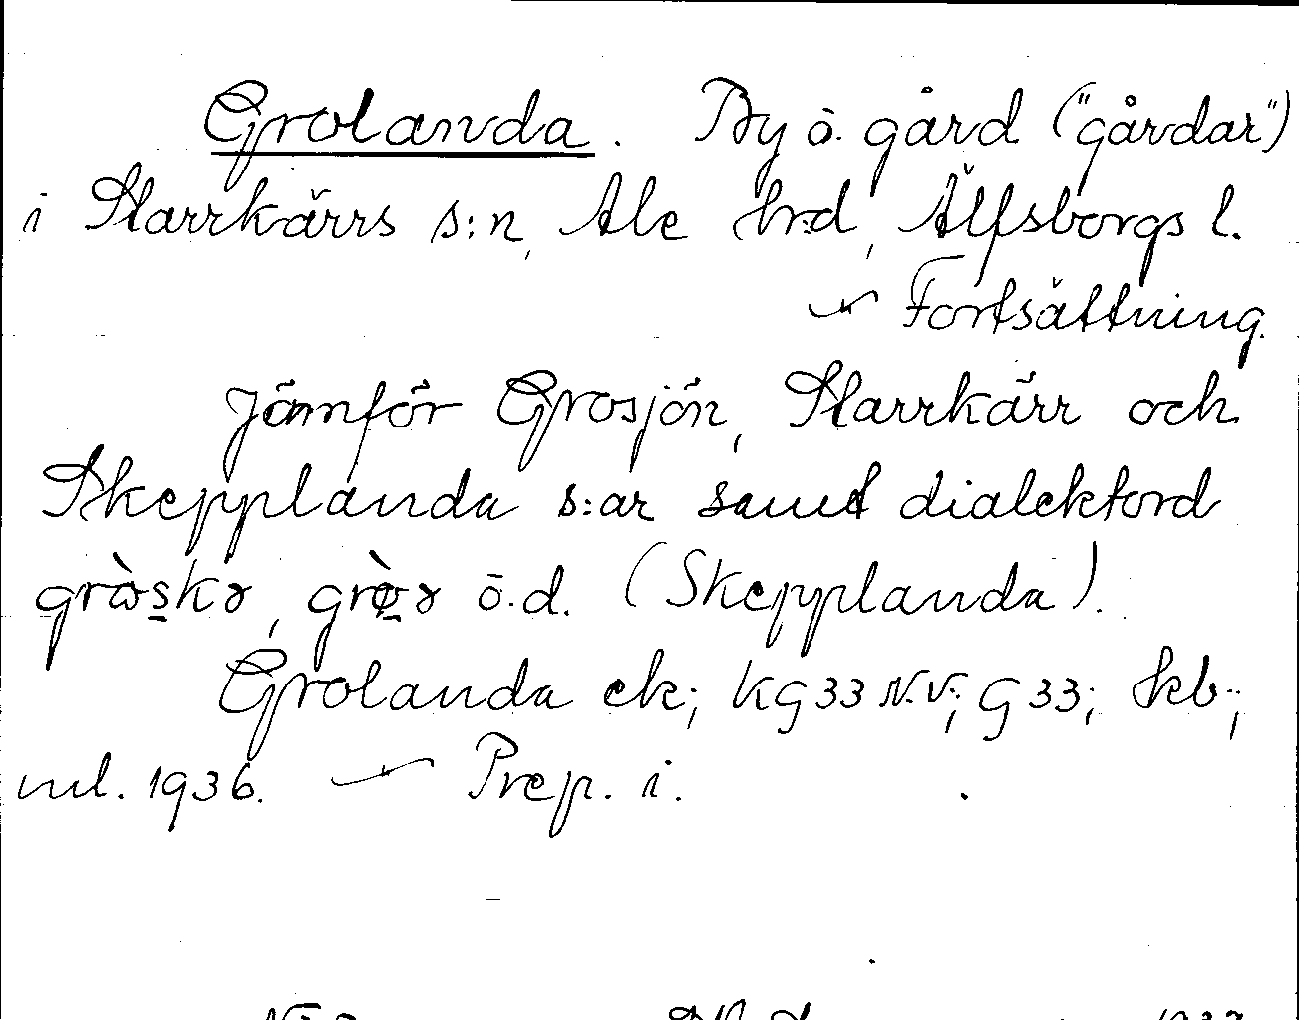 Grolanda. By o. gård ("gårdar")
i Starrkärrs s:n, Ale hrd, Älfsborgs l.
Fortsättning.
Jämför Grosjön, Starrkärr och
Skepplanda s:ar samt dialektord
ö.d. (Skepplanda).
Grolanda ek; KG33 N.V.; G33; Skb.;
ml. 1936. — Prep. i.